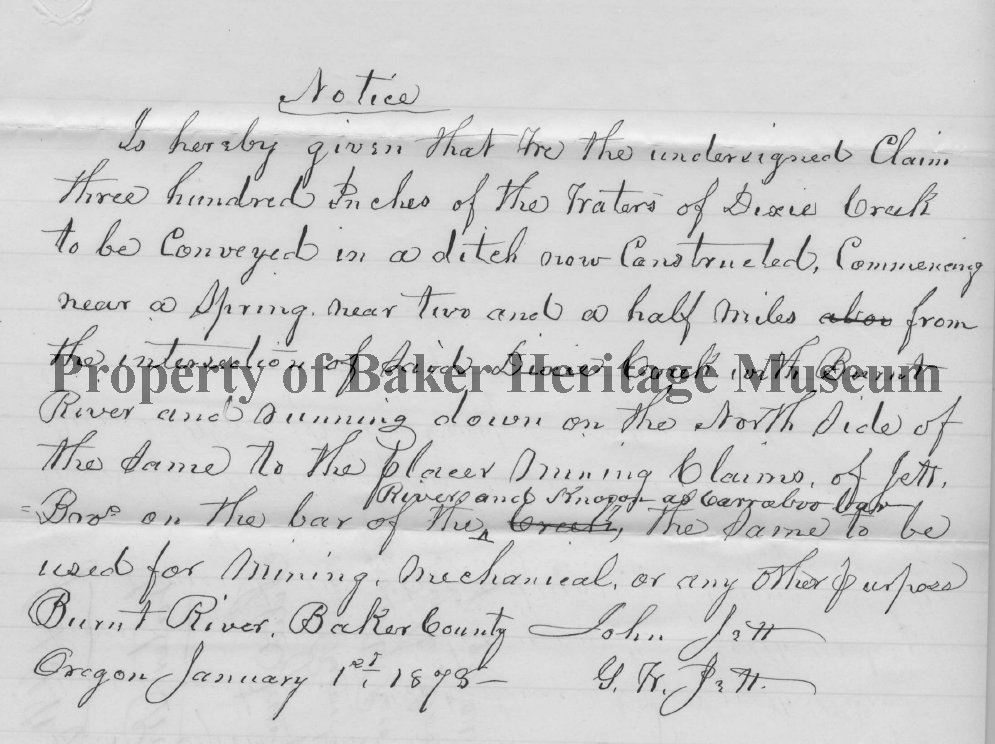 Notice
Is hereby given that We the undersigned Claim
three hundred Inches of the Waters of Dixie Creek
to be Conveyed in a ditch now Constructed, Commencing
near a Spring. near two and a half miles abov from
the intersection of Said Dixie Creek with Burnt
Property of Baker Heritage Museum
River and running down on the North Side of
the Same to the placer Mining Claims, of Jett,
River and Known as Carraboo bar
Bros on the bar of the Creek, the Same to be
used for Mining, Mechanical, or any other purpose
Burnt River, Baker County John Jett
Oregon January 1st, 1875 G. W. Jett.